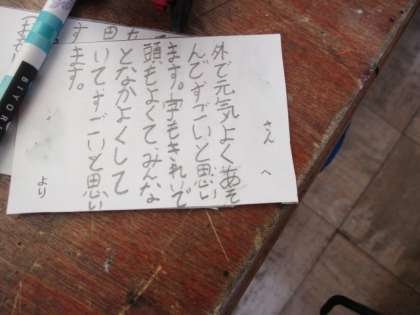 さんへ
外で元気よくあそ
んですごいと思い
ます。字もきれいで
頭もよくて、みんな
となかよくして
いて、すごいと思い
ます。
より
BIYORI